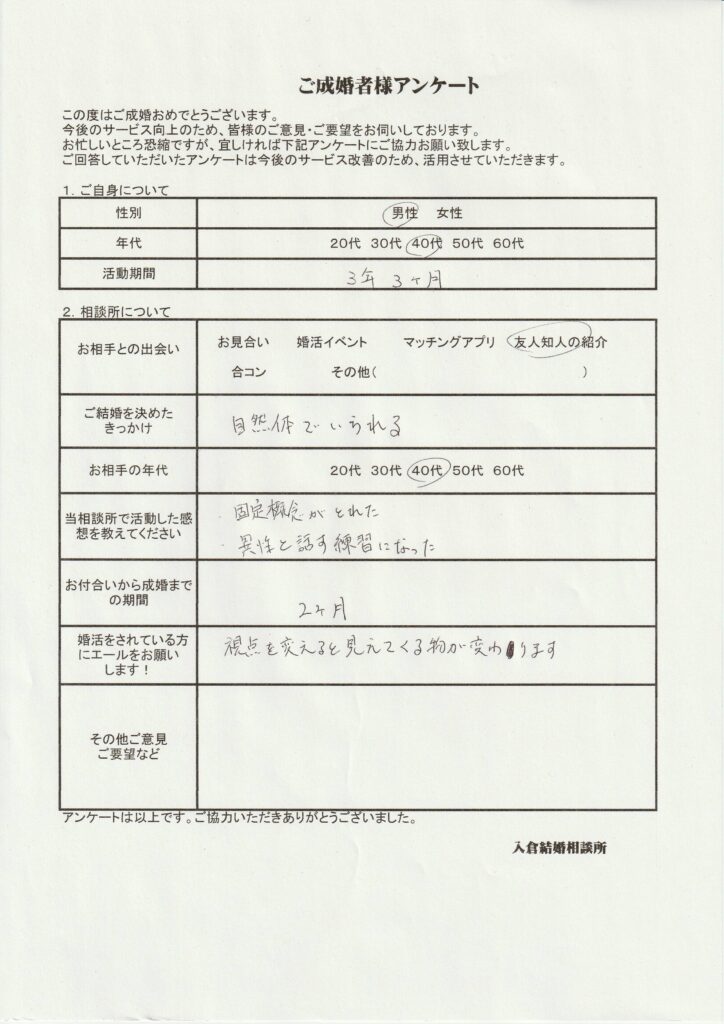 ご成婚者様アンケート
この度はご成婚おめでとうございます。
今後のサービス向上のため、皆様のご意見・ご要望をお伺いしております。
お忙しいところ恐縮ですが、宜しければ下記アンケートにご協力お願い致します。
ご回答していただいたアンケートは今後のサービス改善のため、活用させていただきます。
1．ご自身について
性別 男性 女性
年代 20代 30代 40代 50代 60代
活動期間 3年 3ヶ月
2．相談所について
お相手との出会い お見合い 婚活イベント マッチングアプリ 友人知人の紹介
合コン その他( )
ご結婚を決めた
きっかけ
自然体でいられる
お相手の年代 20代 30代 40代 50代 60代
当相談所で活動した感
想を教えてください
・固定概念がとれた
・異性と話す練習になった
お付合いから成婚まで
の期間
2ヶ月
婚活をされている方
にエールをお願い
します！
視点を変えると見えてくる物が変わります
その他ご意見
ご要望など
アンケートは以上です。ご協力いただきありがとうございました。
入倉結婚相談所